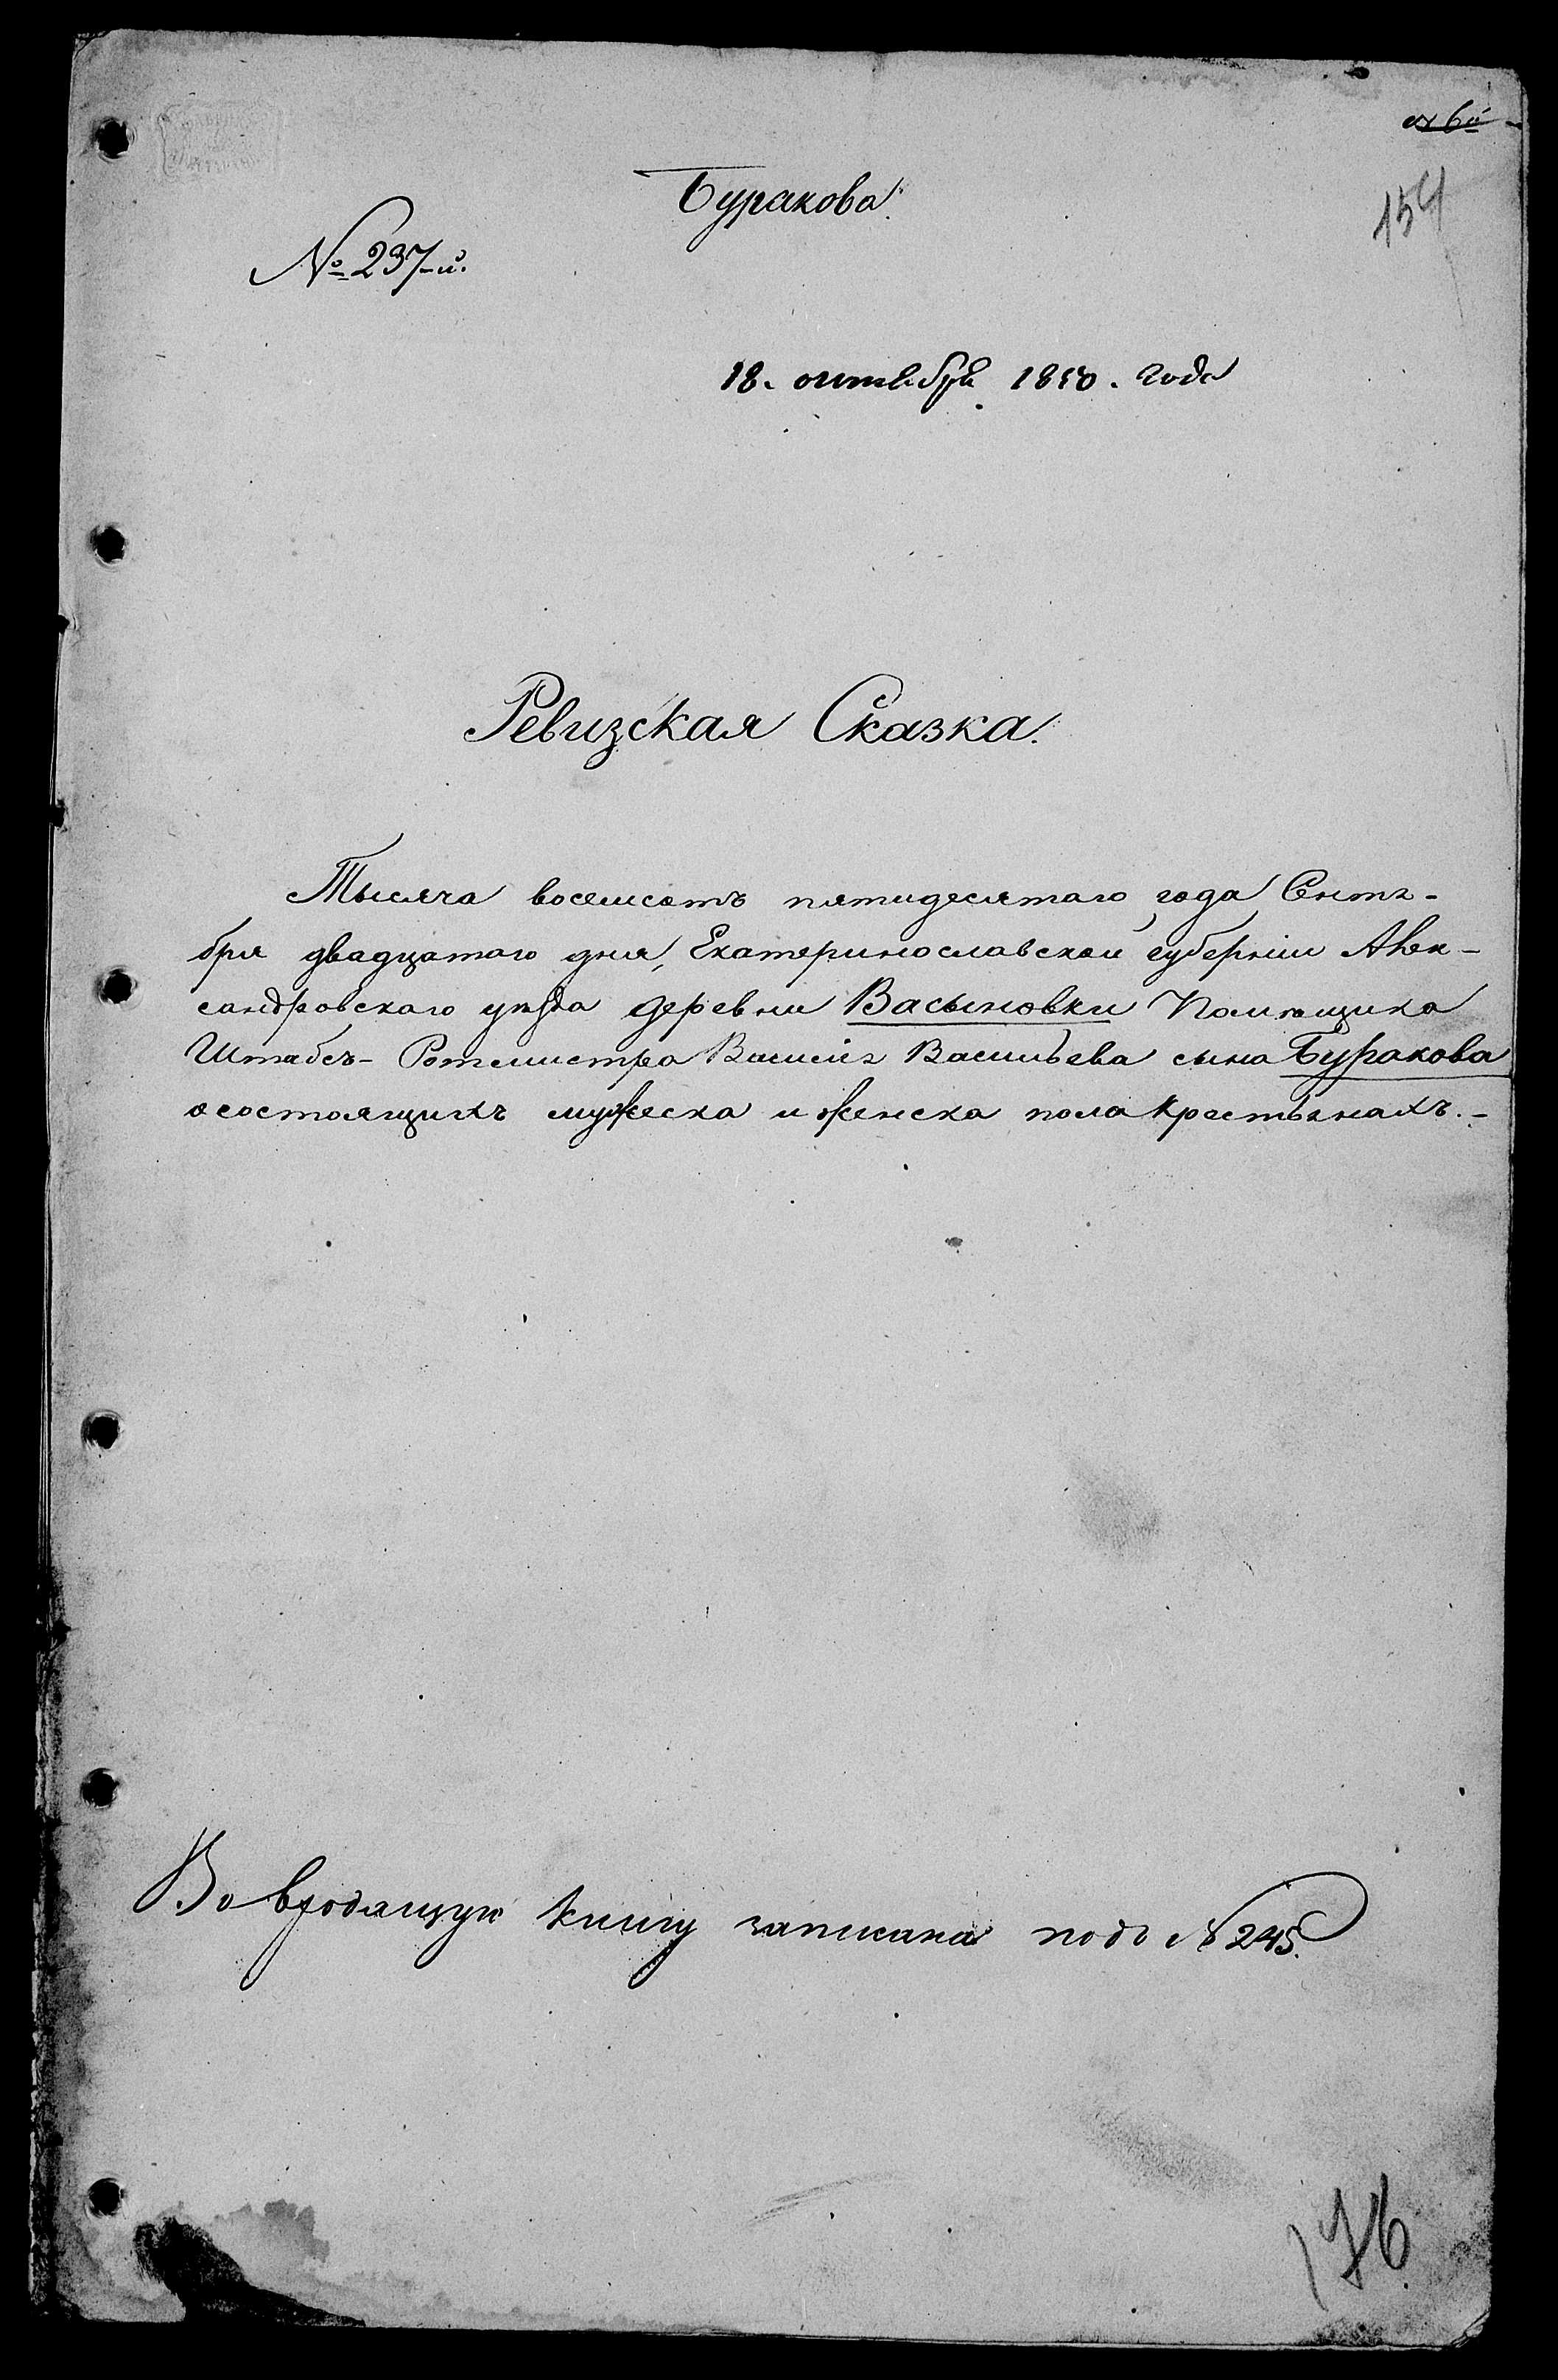 Буракова.
154
№ 237-й.
18. октября 1850. года
Ревизская Сказка.
Тысяча восемсотъ пятидесятаго года Сентя-
бря двадцатаго дня, Екатеринославской губерніи Алек-
сандровскаго уѣзда деревни Васыновки Помѣщика
Штабсъ-Ротмистра Василія Васильева сына Буракова
о состоящихъ мужеска и женска пола крестьянахъ.-
Во входящую книгу записана подъ № 245.
176